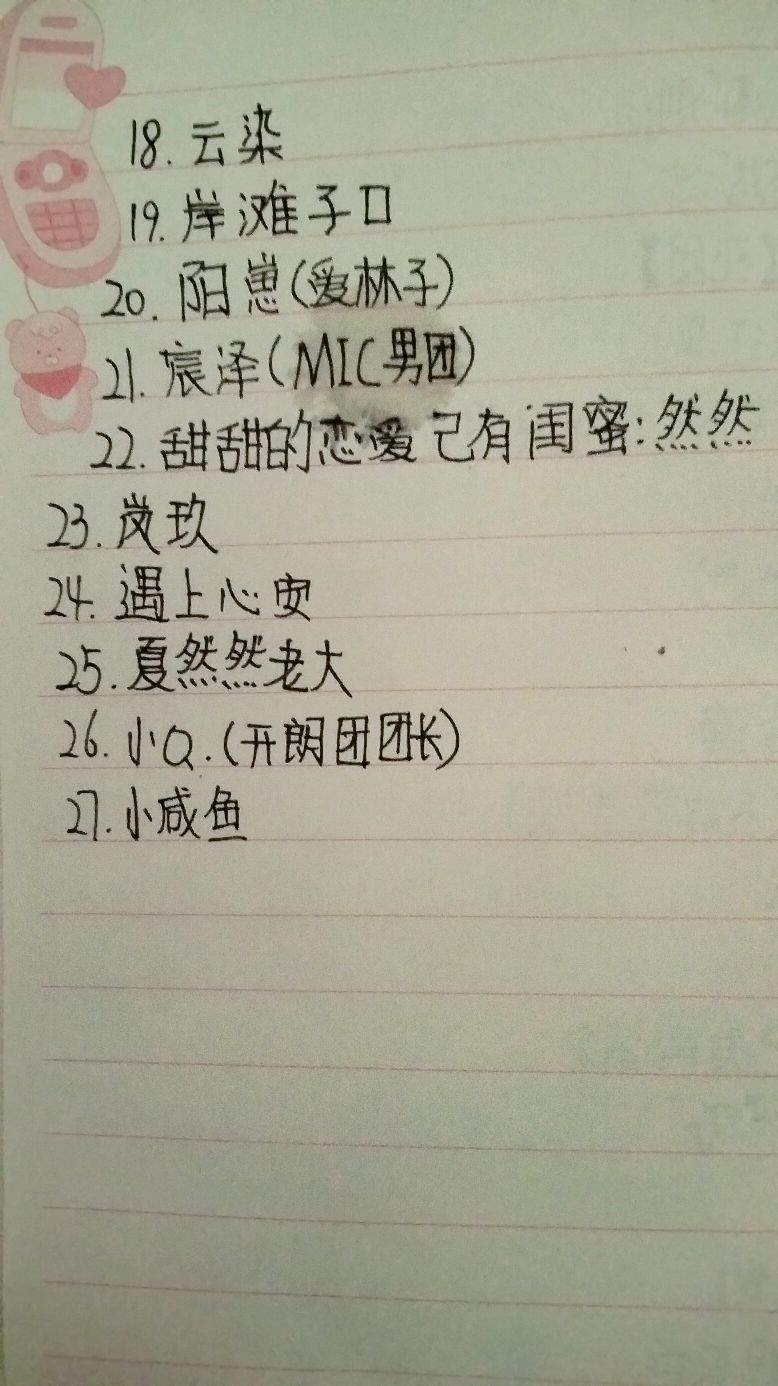 18. 云染
19. 岸滩子口
20. 阳崽(爱林子)
21. 宸泽(MIC男团)
22. 甜甜的恋爱已有闺蜜:然然
23. 岚玖
24. 遇上心安
25. 夏然然老大
26. 小Q.(开朗团团长)
27. 小咸鱼